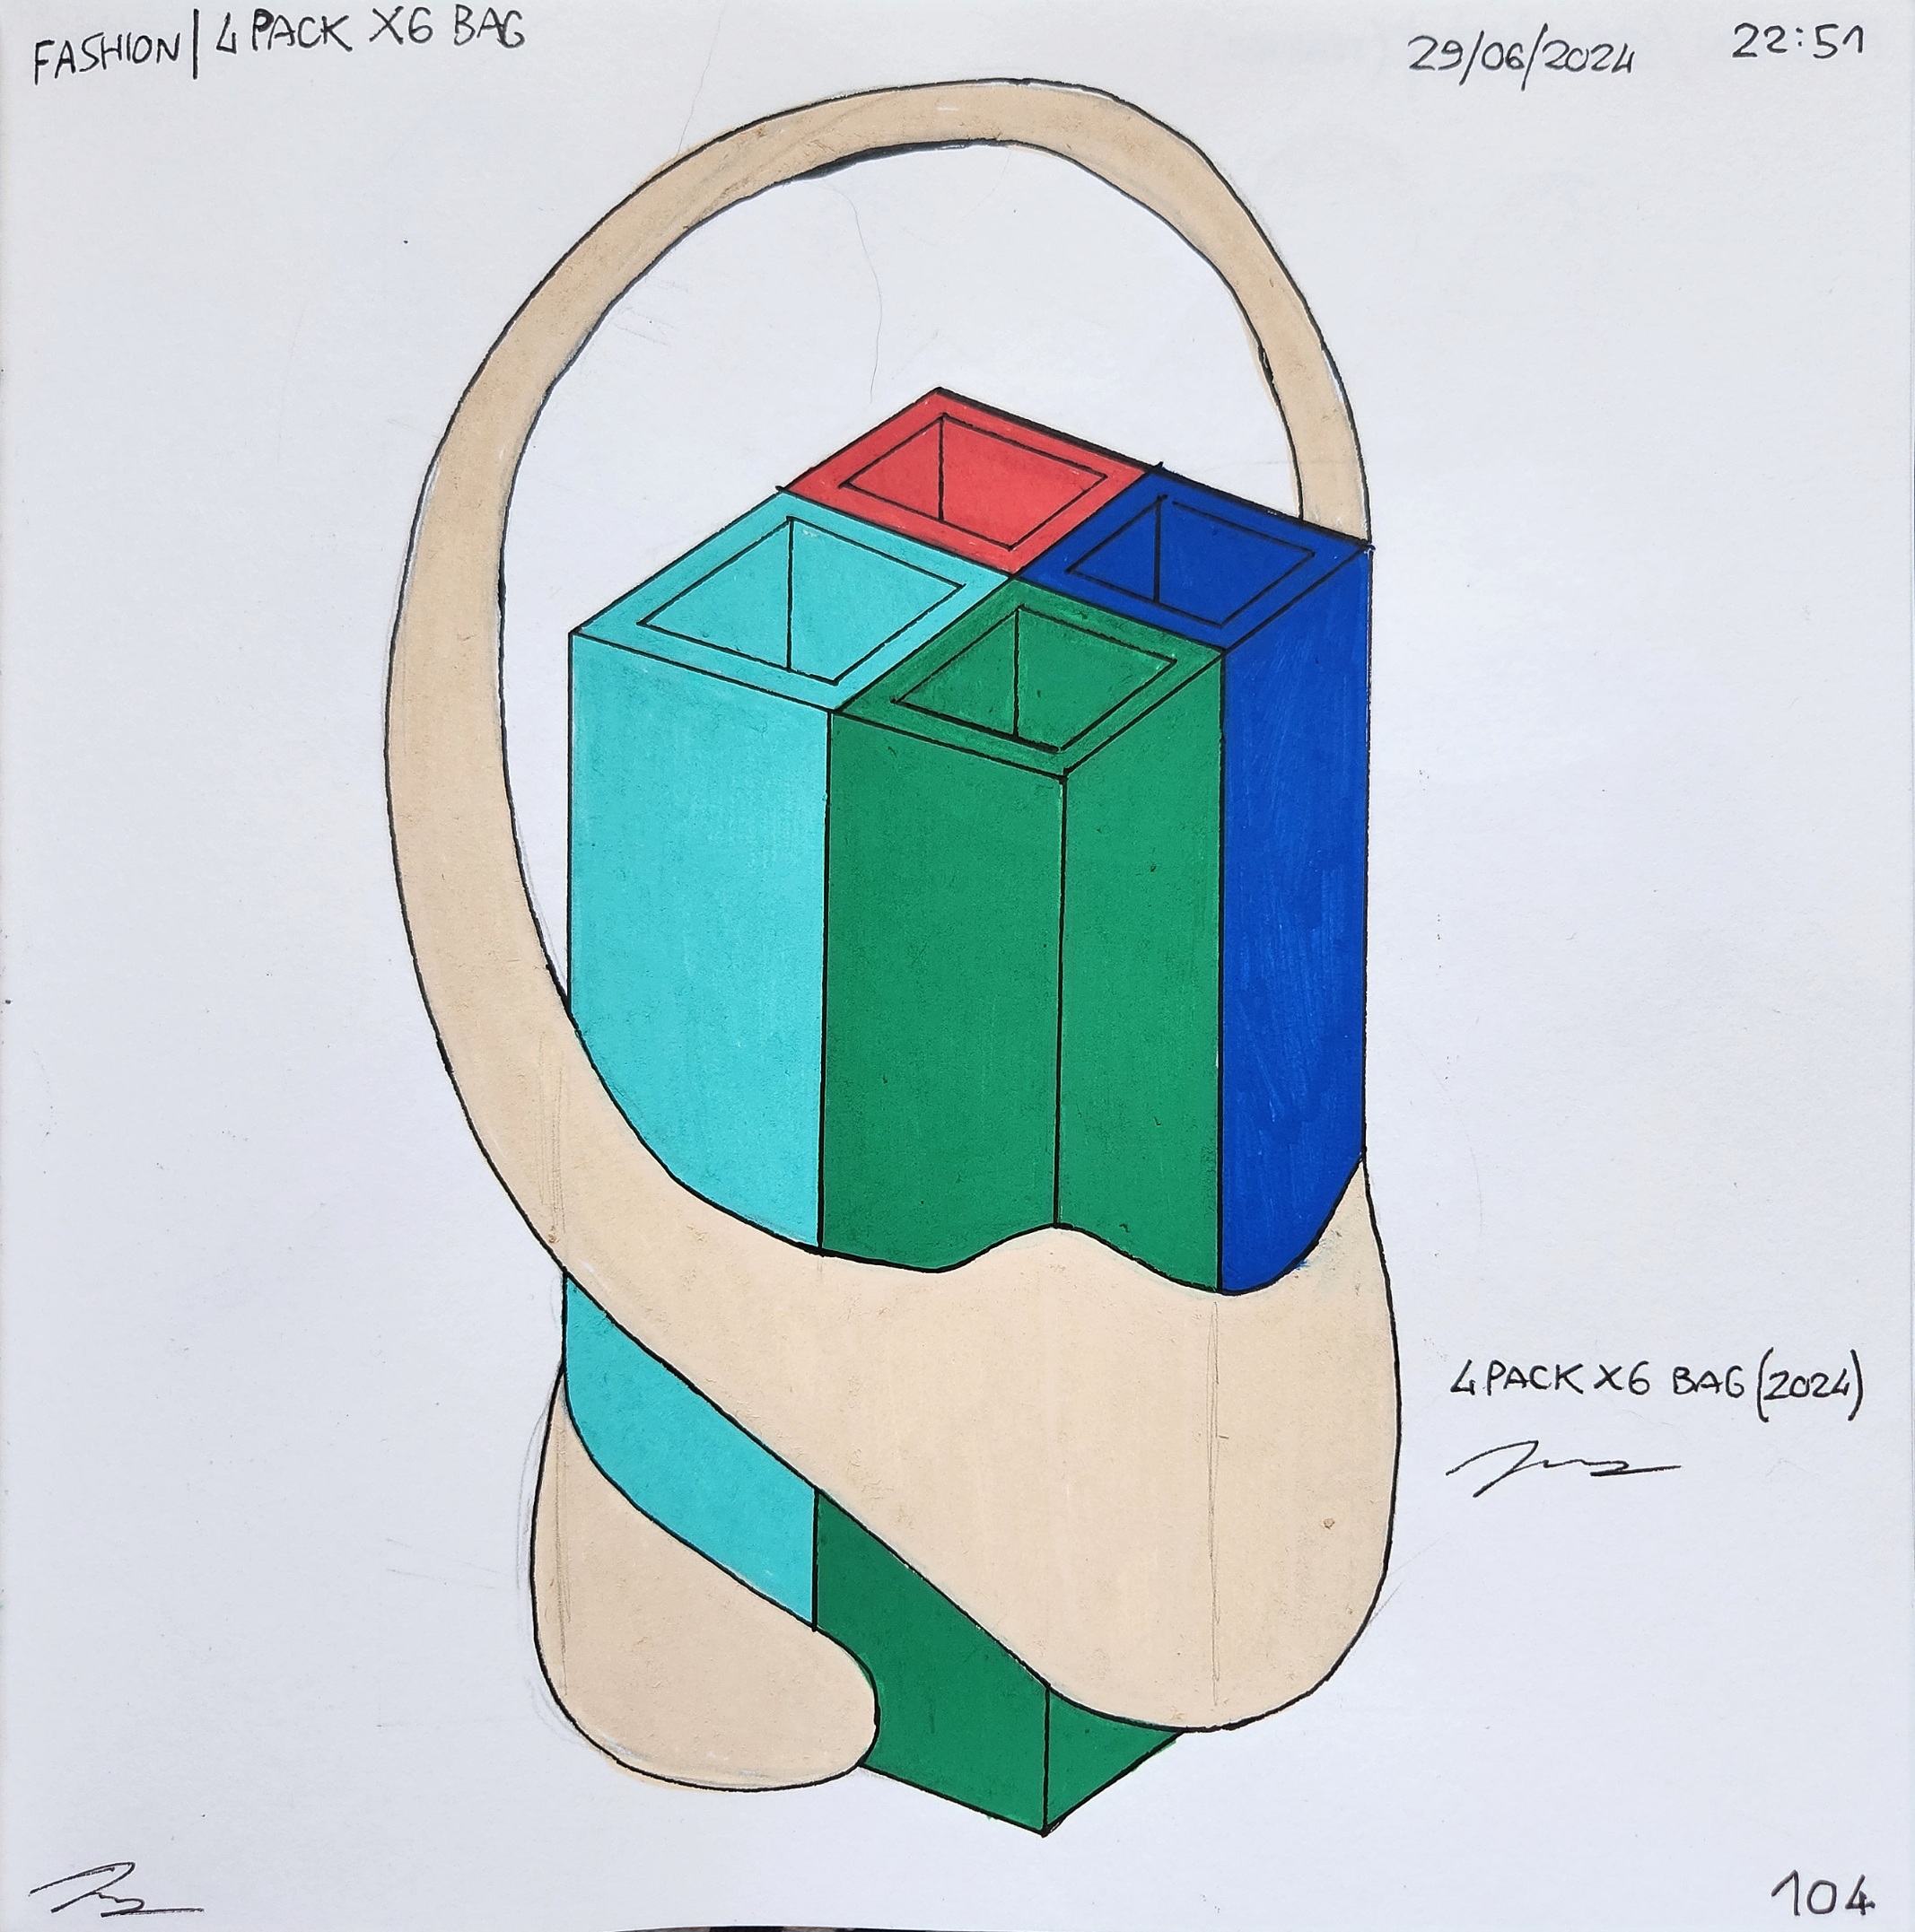 FASHION | 4 PACK X6 BAG
29/06/2024 22:51
4 PACK X6 BAG (2024)
104